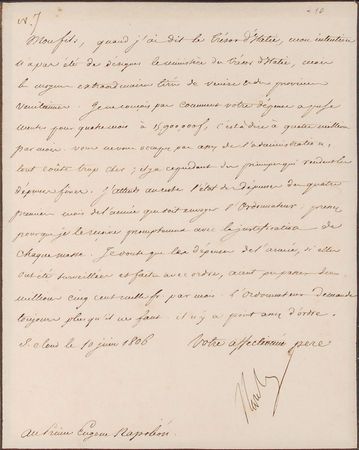 Mon fils, quand j'ai dit le trésor d'Italie, mon intention
n'a pas été de désigner le ministère du trésor d'Italie, mais
le moyen extraordinaire tiré de Venise & des provinces
venitiennes. Je ne conçois pas comment votre dépense a pu se
monter pour quatre mois à 15,900,000f, c'est à dire à quatre millions
par mois. vous ne vous occupez pas assez de l'administration,
tout coûte trop cher; il y a cependant des principes qui rendent les
dépenses fixes. J'attends au reste l'état des dépenses des quatre
premiers mois de l'année que doit envoyer l'Ordonnateur; prenez
pourque je le reçoive promptement avec la justification de
chaque masse. Je voudrais que les dépenses de l'armée, si elles
ont été surveillées et faites avec ordre, n'aient pu passer deux
millions cinq cent mille fr. par mois. l'Ordonnateur demande
toujours plus qu'il ne faut. il n'y a point assez d'ordre.
St. Cloud le 10 juin 1806 Votre affectionné père
Au Prince Eugene Napoléon.